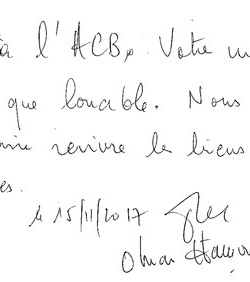 à l'ACB. Votre
que louable. Nous
revivre les liens
le 15/11/2017
Omar